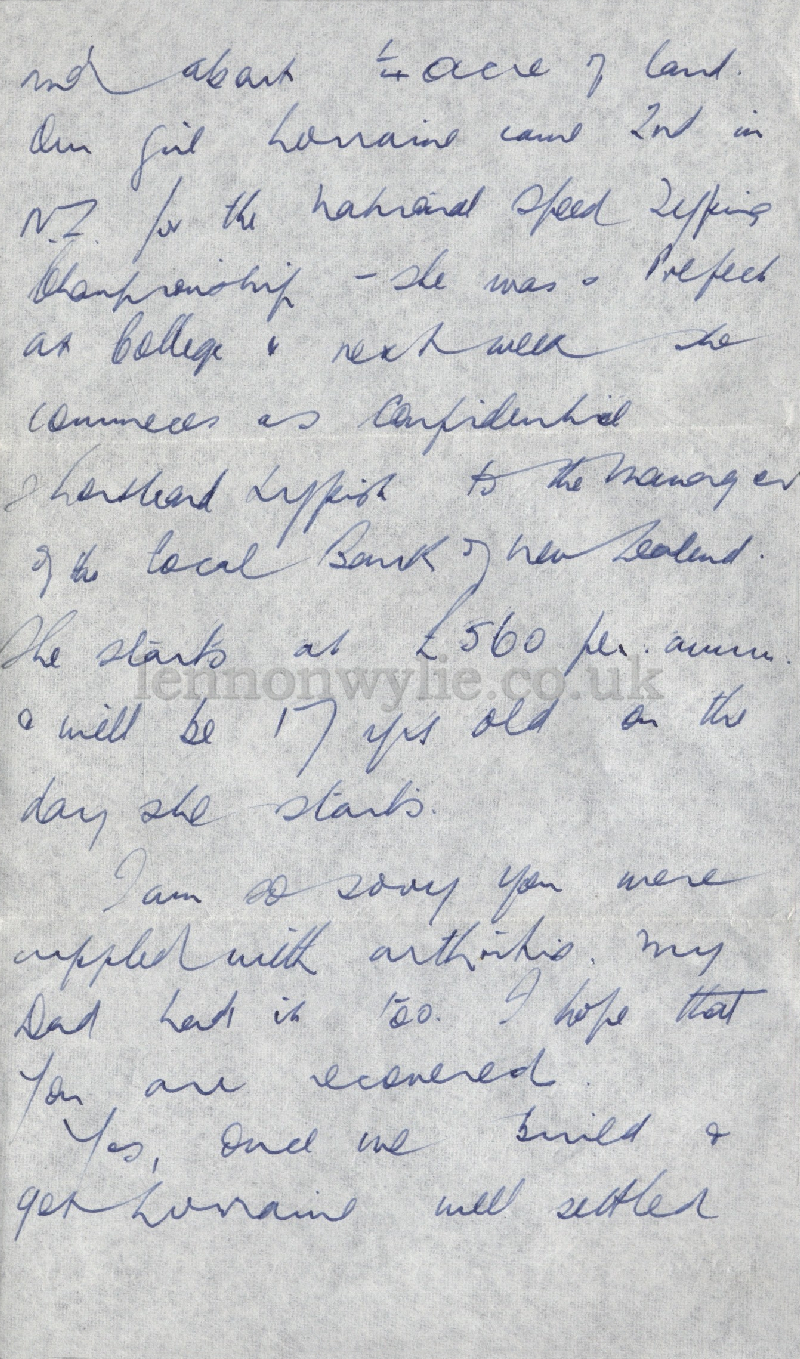 and about 1/4 acre of land.
Our girl Lorraine came 2nd in
N.Z. for the National Speed Typing
Championship - she was a Prefect
at College & next week she
commences as Confidential
Shorthand Typist to the Manager
of the local Bank of New Zealand.
She starts at £560 per. annum.
lennonwylie.co.uk
& will be 17 yrs old on the
day she starts.
I am so sorry you were
crippled with arthritis. My
Dad had it too. I hope that
you are recovered.
Yes, once we build &
get Lorraine well settled